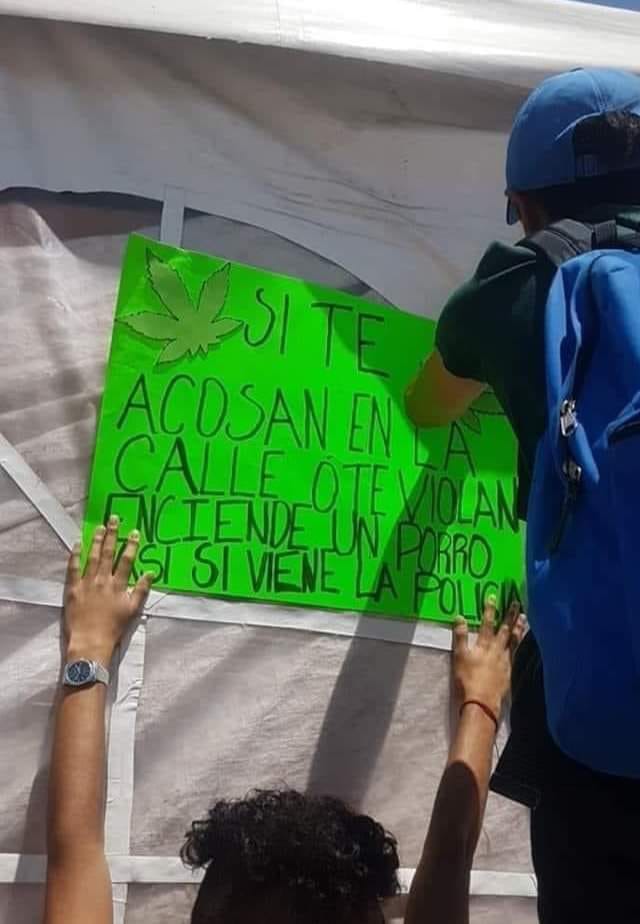 SI TE
ACOSAN EN LA
CALLE O TE VIOLAN
ENCIENDE UN PORRO
ASI SI VIENE LA POLICIA